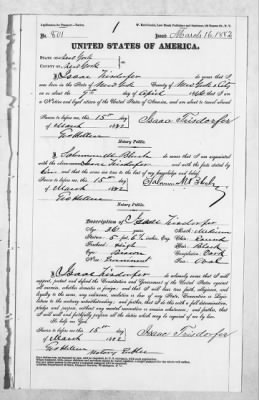 No. 801
Issued March 16, 1882
UNITED STATES OF AMERICA.
STATE OF New York
COUNTY OF New York
I, Isaac Trisdorfer do swear that I
was born in the State of New York County of New York & City
on or about the 9th day of April
a Native and loyal citizen of the United States of America, and am about to travel abroad
Sworn to before me, this 15th day
of March 1882
Isaac Trisdorfer
Notary Public.
I, Solomon do swear that I am acquainted
with the above-named Isaac Trisdorfer and with the facts stated by
him, and that the same are true to the best of my knowledge and belief.
Sworn to before me, this 15 day
of March 1882
Notary Public.
Description of Isaac Trisdorfer
Age: 26 years Mouth: Medium
Stature: 5 ft. 6 1/2 inches, Eng. Chin: Round
Forehead: High Hair: Black
Eyes: Brown Complexion: Dark
Nose: Prominent Face: Oval
I, Isaac Trisdorfer do solemnly swear that I will
support, protect and defend the Constitution and Government of the United States against
all enemies, whether domestic or foreign; and that I will bear true faith, allegiance, and
loyalty to the same, any ordinance, resolution or law of any State, Convention or Legis-
lature to the contrary notwithstanding; and further, that I do this with a full determination,
pledge and purpose, without any mental reservation or evasion whatsoever; and further, that
I will well and faithfully perform all the duties which may be required of me by law.
So help me God.
Sworn to before me, this 15th day
of March 1882
Isaac Trisdorfer
Notary Public